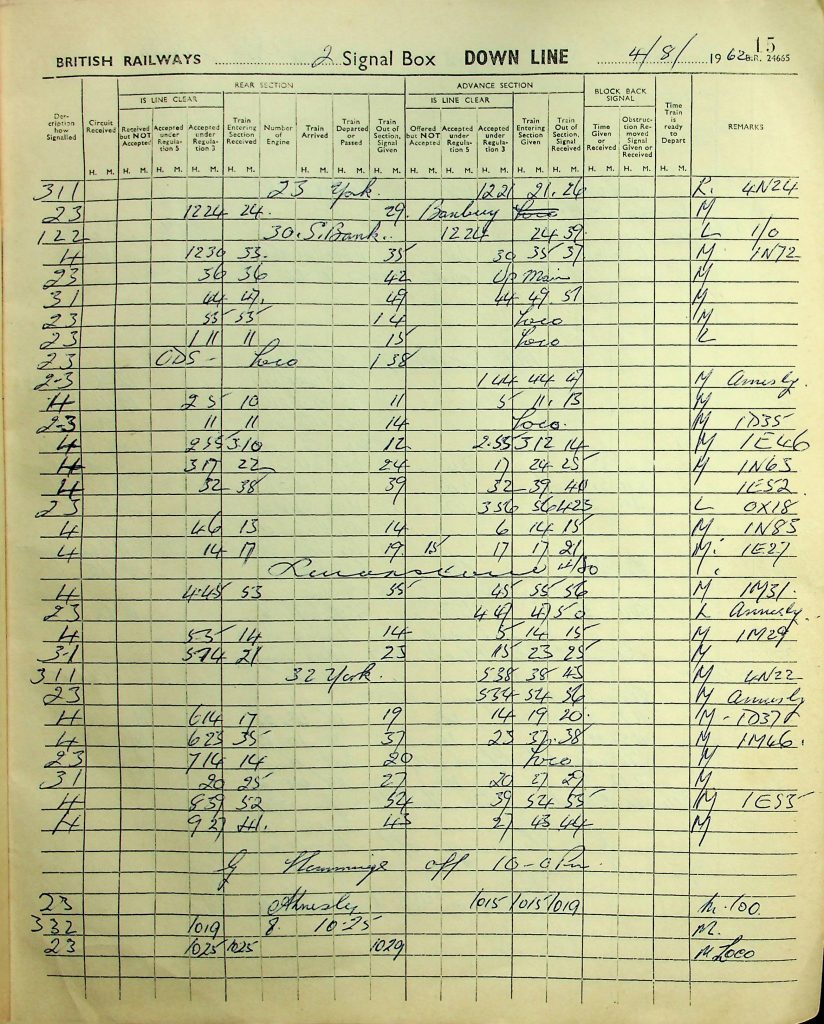 15
BRITISH RAILWAYS 2 Signal Box DOWN LINE 4/8/ 1962 B.R. 24665
REAR SECTION ADVANCE SECTION BLOCK BACK SIGNAL
IS LINE CLEAR IS LINE CLEAR
Description how Signalled Circuit Received Received but NOT Accepted Accepted under Regulation 5 Accepted under Regulation 3 Train Entering Section Received Number of Engine Train Arrived Train Departed or Passed Train Out of Section, Signal Given Offered but NOT Accepted Accepted under Regulation 5 Accepted under Regulation 3 Train Entering Section Given Train Out of Section, Signal Received Time Given or Received Obstruction Removed Signal Given or Received Time Train is ready to Depart REMARKS
H. M. H. M. H. M. H. M. H. M. H. M. H. M. H. M. H. M. H. M. H. M. H. M. H. M. H. M. H. M. H. M.
311 23 York. 1221 21. 26 R. 4N24
23 1224 24. 29. Banbury Loco M
122 30. S. Bank. 1224 24 39 L 1/0
4 1230 33. 35 30 35 37 M 1N72
23 36 36 42 Up Main M
31 44 47. 49 44 49 51 M
23 55 55 14 Loco M
23 1 11 11 15 Loco L
23 ODS - Loco 1 38
2-3 144 44 47 M Annesly.
4 2 5 10 11 5 11. 13 M
2-3 11 11 14 Loco. M 1D35
4 255 310 12 2.55 312 14 M 1E46
4 317 22 24 17 24 25 M 1N63
4 32 38 39 32 39 40 1E52
23 356 56 425 L 0X18
4 46 13 14 6 14 15 M 1N83
4 14 17 19 15 17 17 21 M. 1E27
4 445 53 55 45 55 56 M 1M31.
23 449 49 50 L Annesly.
4 55 14 14 5 14 15 M 1M29
3-1 514 21 23 15 23 25 M
311 32 York. 538 38 43 M 4N22
23 554 54 56 M Annesly
4 614 17 19 14 19 20. M - 1D37
4 623 35 37 23 37. 38 M 1M46.
23 714 14 20 Loco M
31 20 25 27 20 27 29 M
4 839 52 54 39 54 55 M 1E55
4 927 41. 43 27 43 44 M
G Hemmings off 10-0 Pm.
23 Annesly 1015 1015 1019 M. 100.
332 1019 8. 10-25 M.
23 1025 1025 1029 M Loco